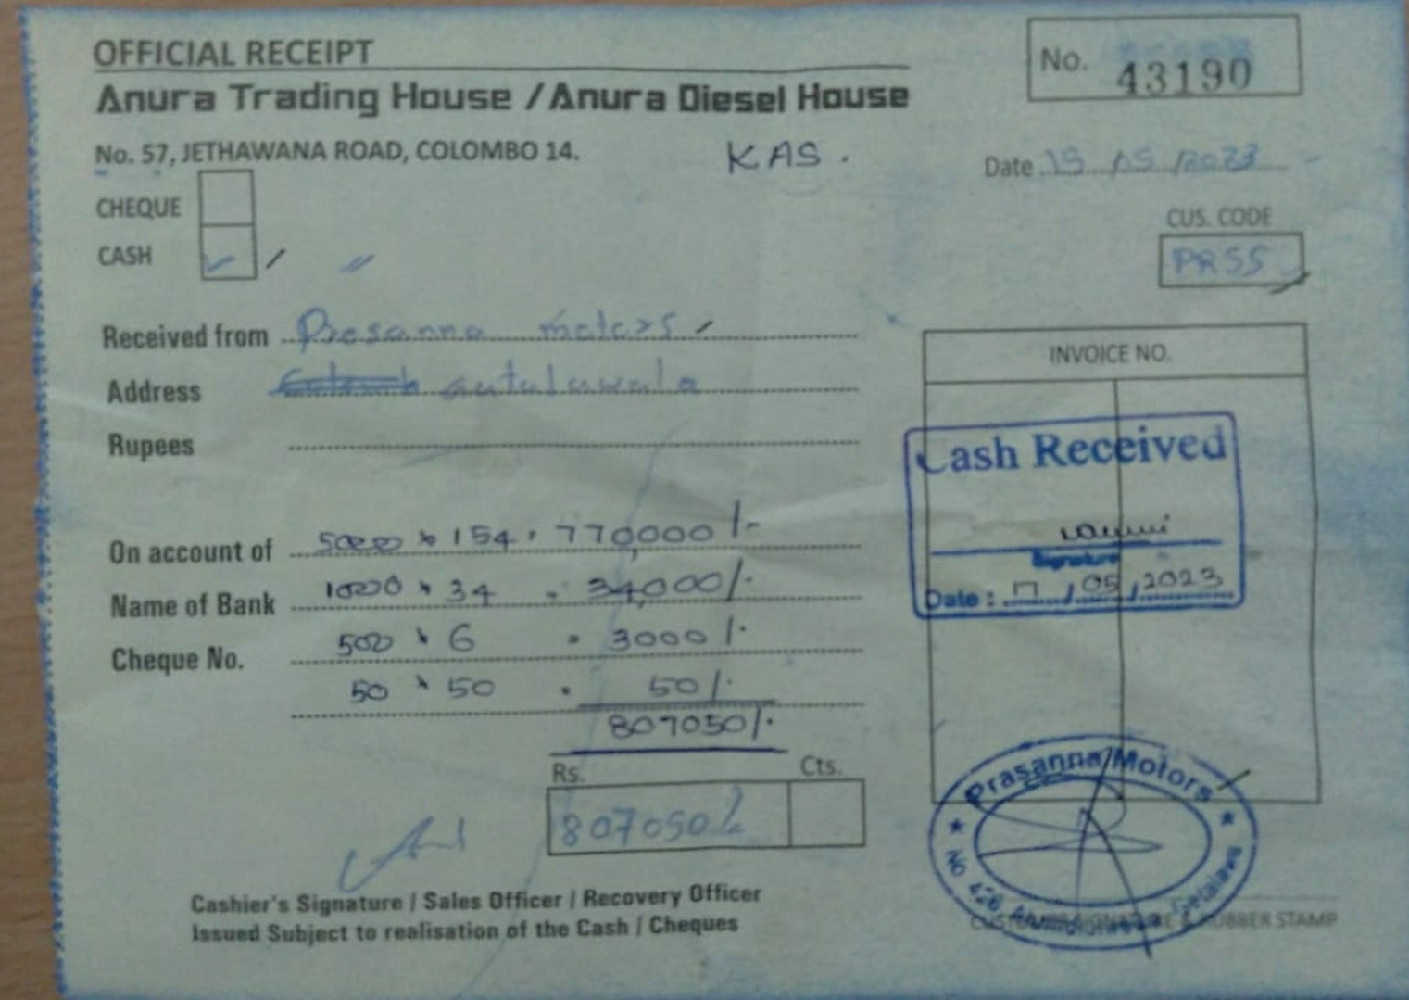 OFFICIAL RECEIPT
No. 43190
Anura Trading House / Anura Diesel House
No. 57, JETHAWANA ROAD, COLOMBO 14.
KAS.
Date 15 /05 /2023
CHEQUE
CUS. CODE
CASH
PR55
Received from Prosanna motors
INVOICE NO.
Address
Rupees
Cash Received
On account of 5000 x 154 . 770,000/-
Signature
Name of Bank 1000 x 34 . 34,000/-
Date : 17 / 05 / 2023
Cheque No. 500 x 6 . 3000/-
50 x 50 . 50/-
807050/-
Rs. Cts.
807050/
Prasanna Motors
No 426
Cashier's Signature / Sales Officer / Recovery Officer
Issued Subject to realisation of the Cash / Cheques
CUSTOMER SIGNATURE & RUBBER STAMP